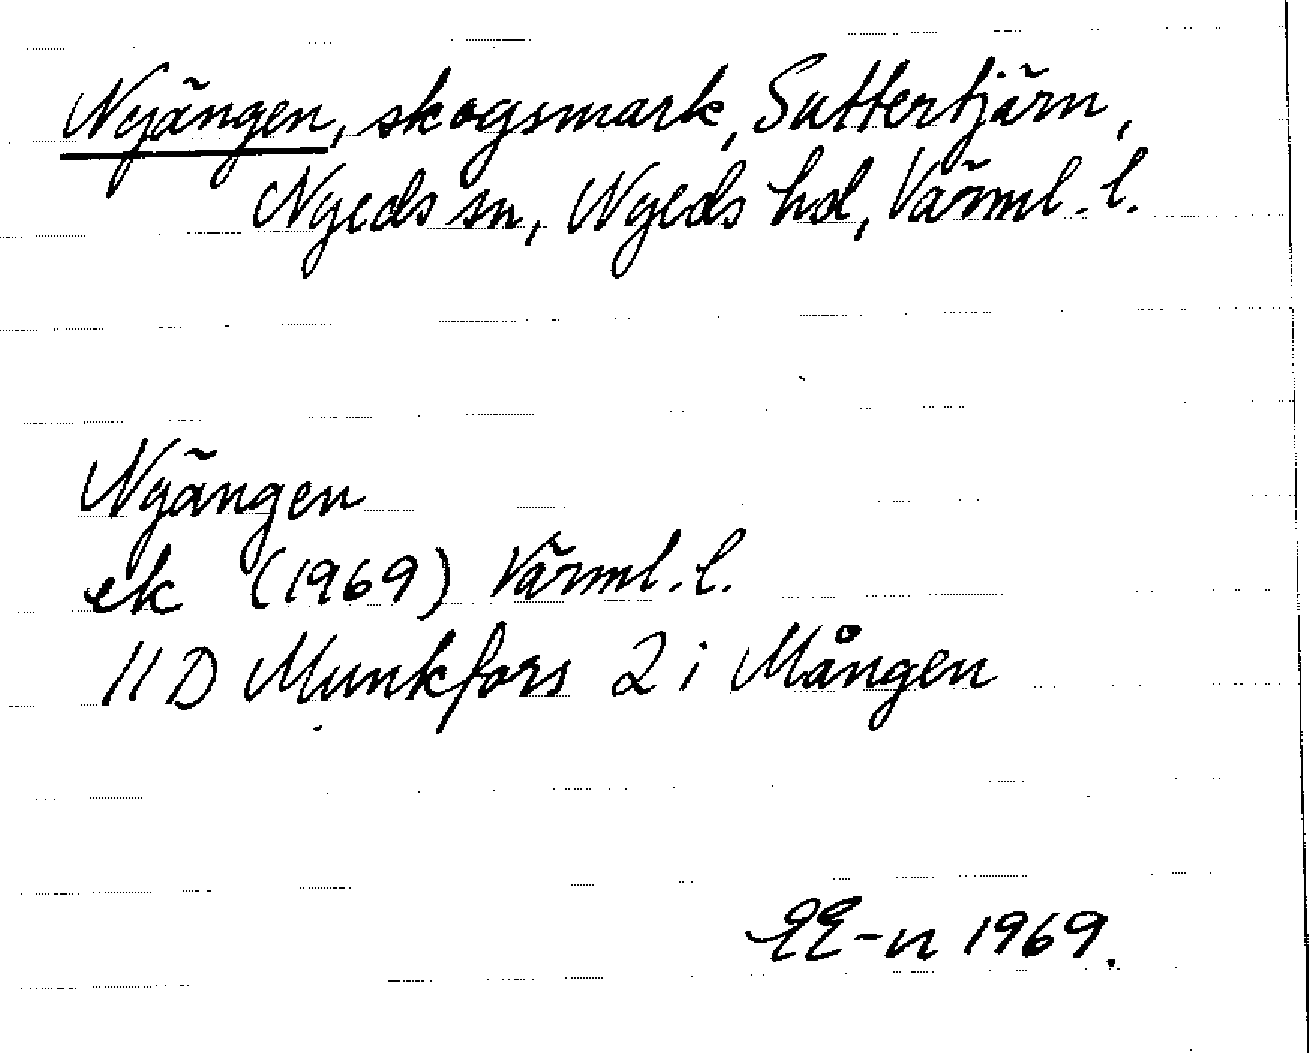 Nyängen, skogsmark, Suttertjärn,
Nyeds sn, Nyeds hd, Värml. l.
Nyängen
ek (1969) Värml. l.
11 D Munkfors 2 i Mången
EE-n 1969.